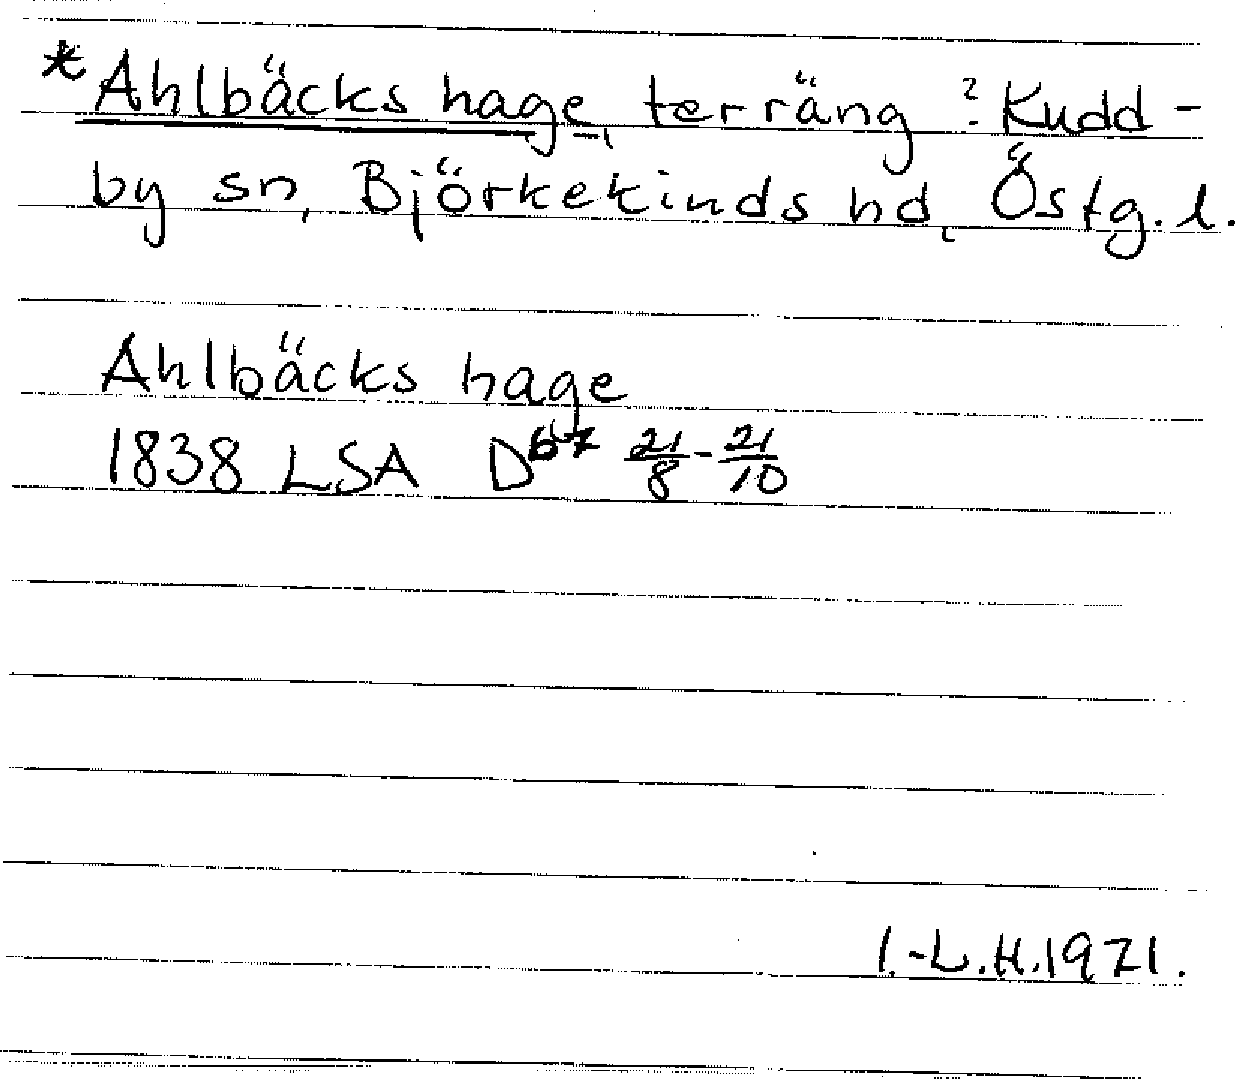 *Ahlbäcks hage, terräng ? Kudd-
by sn, Björkekinds hd, Östg. l.
Ahlbäcks hage
1838 LSA D67 21/8-21/10
I.-L.H.1971.